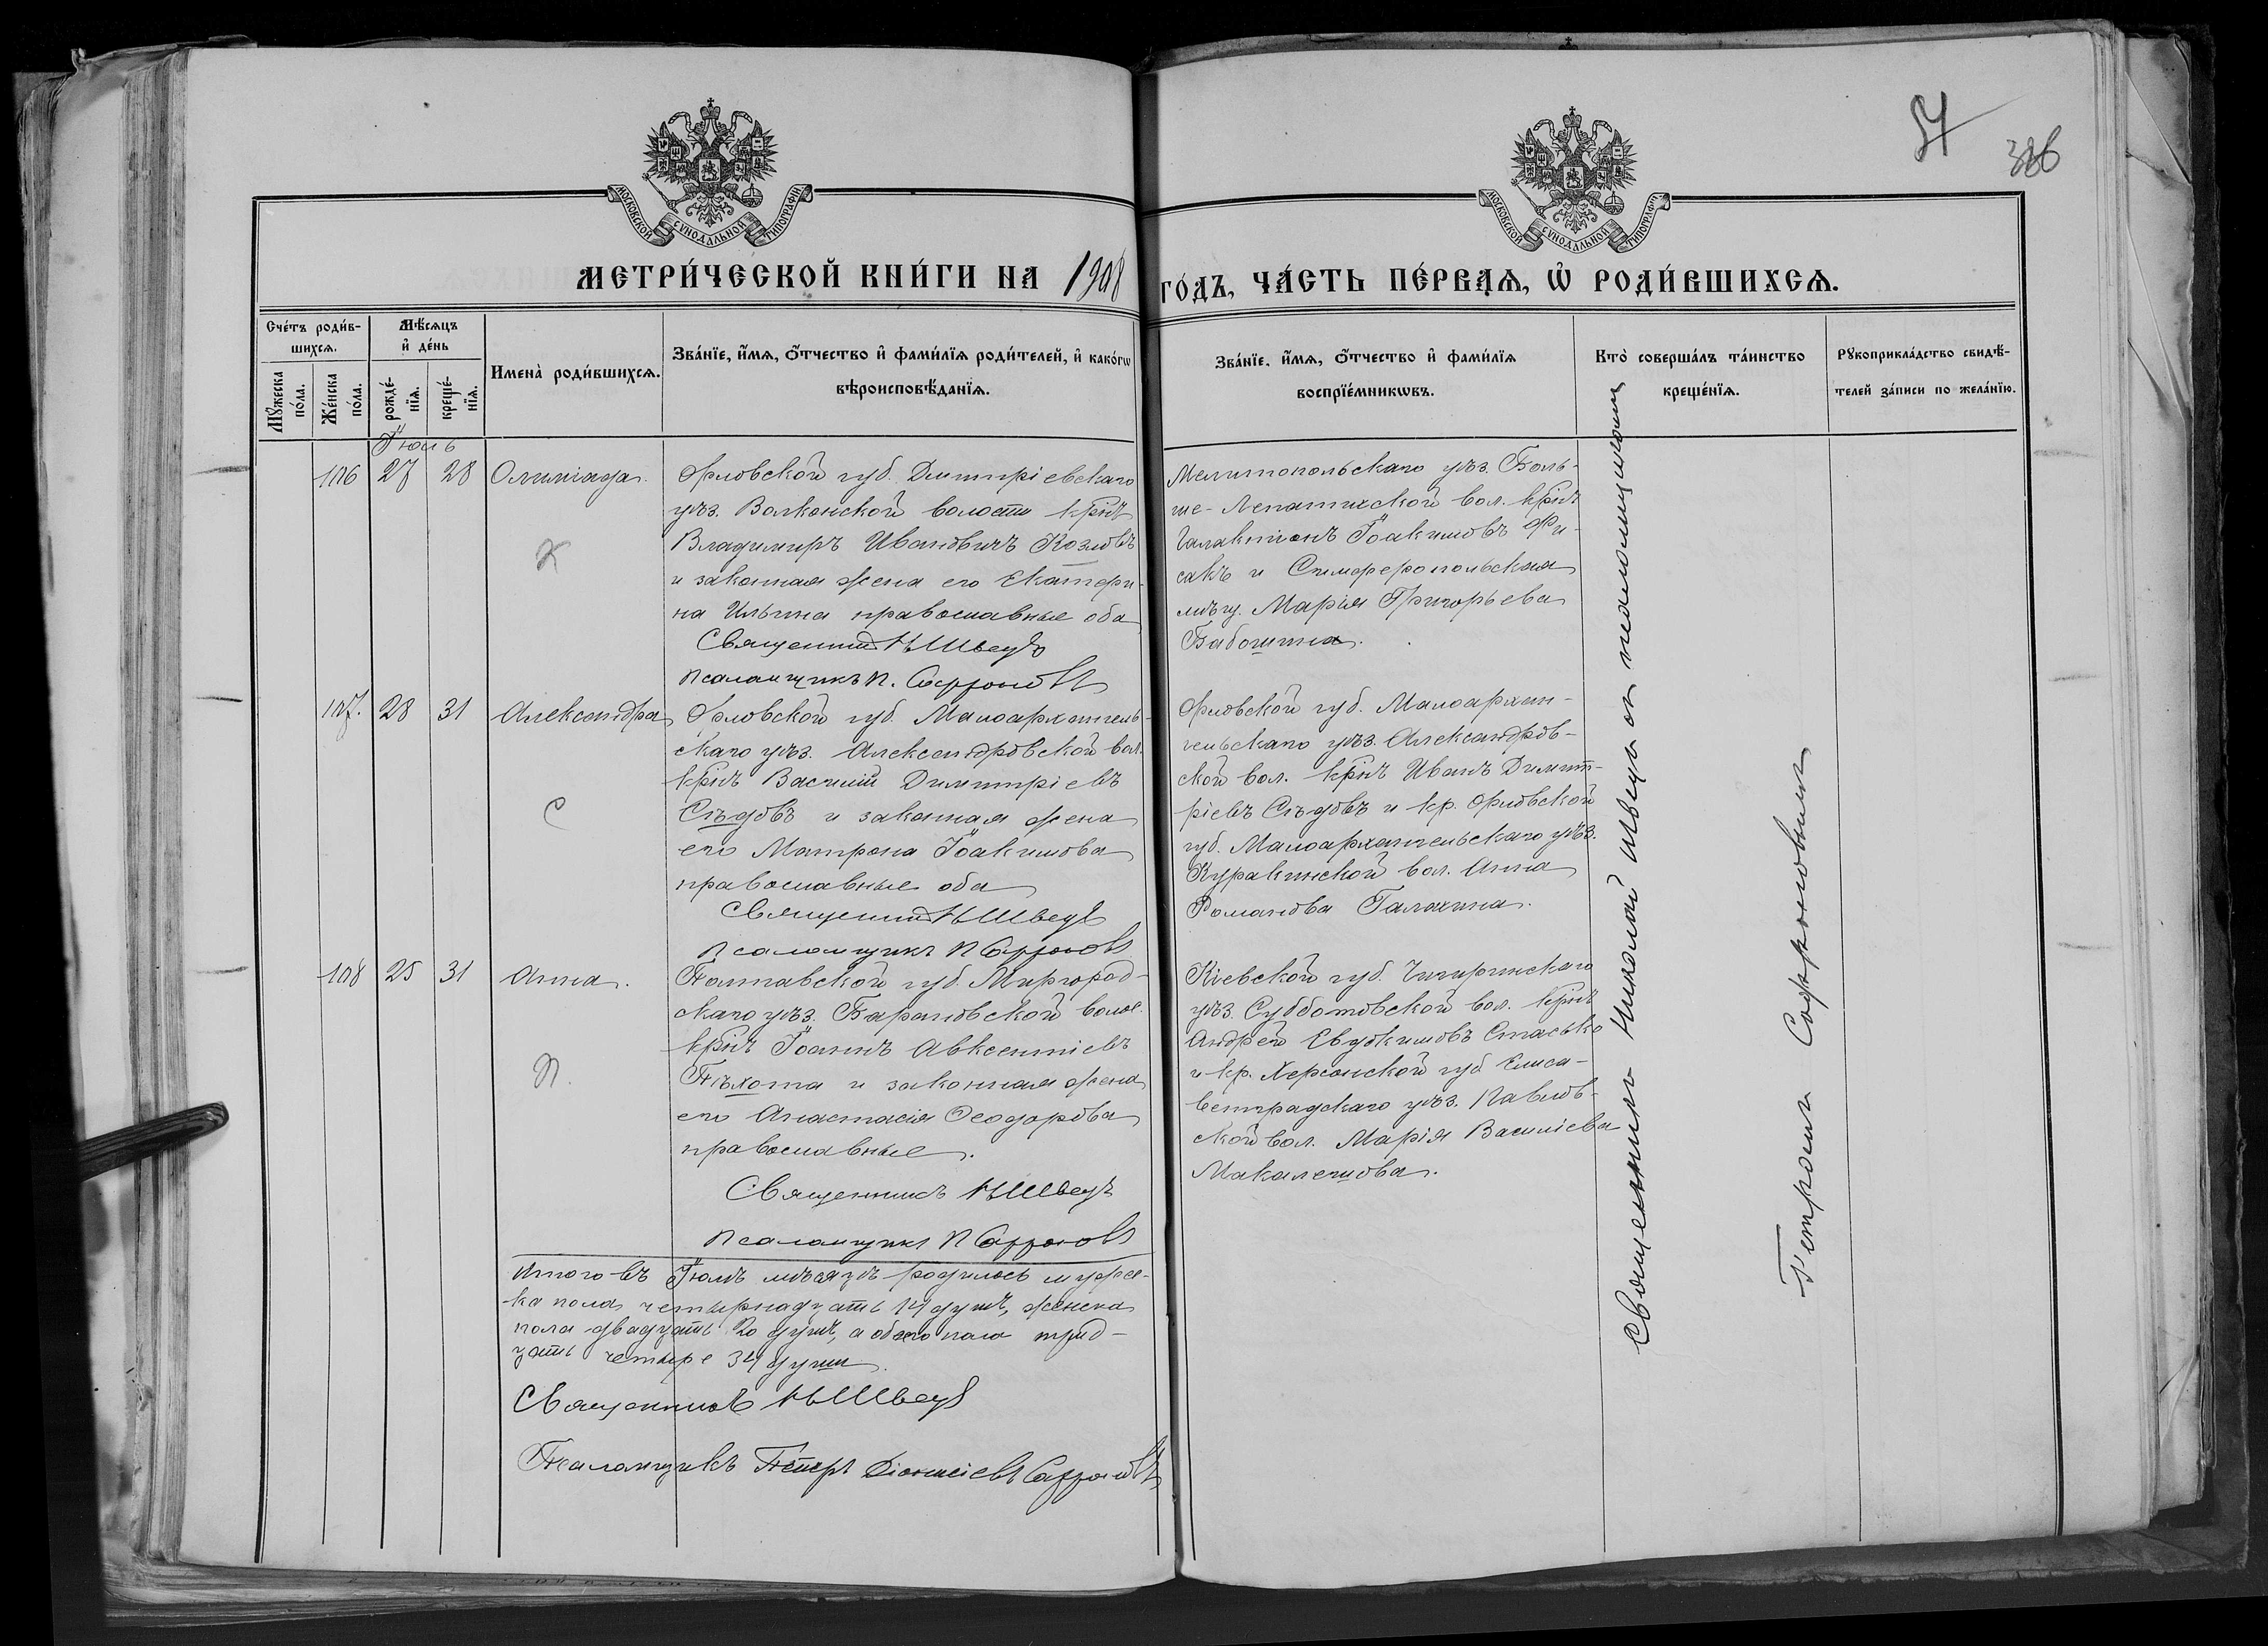 54
386
МОСКОВСКОЙ СѴНОДАЛЬНОЙ ТИПОГРАФІИ
МОСКОВСКОЙ СѴНОДАЛЬНОЙ ТИПОГРАФІИ
МЕТРИ́ЧЕСКОЙ КНИ́ГИ НА 1908 ГО́ДЪ, ЧА́СТЬ ПЕ́РВАѦ, Ѡ РОДИ́ВШИХСѦ.
Сче́тъ роди́в-
шихсѧ.
Мꙋ́жеска
по́ла.
Же́нска
по́ла.
Мѣ́сѧцъ
и҆ де́нь
рожде́-
нїѧ.
креще́-
нїѧ.
Имена̀ роди́вшихсѧ.
Зва́нїе, и҆́мѧ, ѻ҆́тчество и҆ фами́лїѧ роди́телей, и҆ како́гѡ
вѣроисповѣ́данїѧ.
Зва́нїе, и҆́мѧ, ѻ҆́тчество и҆ фами́лїѧ
воспрїе́мникѡвъ.
Кто̀ соверша́лъ та́инство
креще́нїѧ.
Рꙋкоприкла́дство свидѣ́-
телей за́писи по жела́нїю.
Іюль
106 27 28 Олимпіада.
Орловской губ. Димитріевскаго
уѣз. Волконской волости крнъ
Владимиръ Ивановичъ Козловъ
и законная жена его Екатери-
на Ильина православные оба
Священникъ Н Швецъ
Псаломщикъ П. Сафроновъ
К
Мелитопольскаго уѣз. Боль-
ше-Лепатихской вол. крнъ
Галактіонъ Іоакимовъ Фи-
сакъ и Симферопольская
мѣщ. Марія Григорьева
Бабошина.
107. 28 31 Александра
Орловской губ. Малоархангель-
скаго уѣз. Александровской вол.
крнъ Василій Димитріевъ
Сѣдовъ и законная жена
его Матрона Іоакимова
православные оба
Священникъ Н Швецъ
Псаломщикъ П Сафроновъ
С
Орловской губ. Малоархан-
гельскаго уѣз. Александров-
ской вол. крнъ Иванъ Димит-
ріевъ Сѣдовъ и кр. Орловской
губ. Малоархангельскаго уѣз.
Куракинской вол. Анна
Романова Галахина.
108 25 31 Анна.
Полтавской губ. Миргород-
скаго уѣз. Барановской волос.
крнъ Іоаннъ Авксентіевъ
Пѣхота и законная жена
его Анастасія Ѳеодорова
православные.
Священникъ Н Швецъ
Псаломщикъ П Сафроновъ
П.
Кіевской губ. Чигиринскаго
уѣз. Субботовской вол. крнъ
Андрей Евдокимовъ Стасько
и кр. Херсонской губ Елиса-
ветградскаго уѣз. Павлов-
ской вол. Марія Василіева
Макалешова.
Священникъ Николай Швецъ съ псаломщикомъ
Петромъ Софроновымъ
Итого въ Іюлѣ мѣсяцѣ родилось мужес-
ка пола четырнадцать 14 душъ, женска
пола двадцать 20 душъ, а обоего пола трид-
цать четыре 34 души.
Священникъ Н Швецъ
Псаломщикъ Петръ Діонисіевъ Сафроновъ